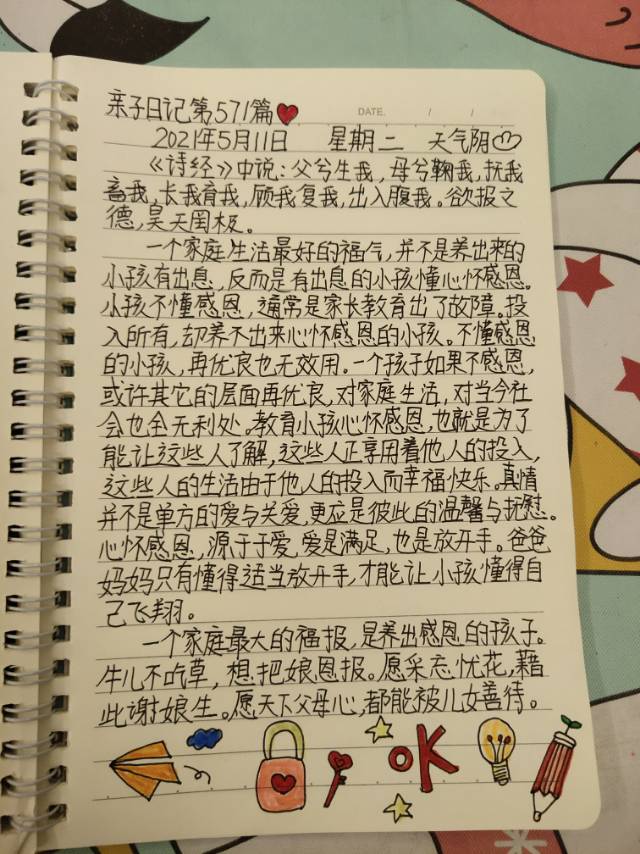 亲子日记第571篇
DATE. / /
2021年5月11日 星期二 天气阴
《诗经》中说：父兮生我，母兮鞠我，抚我
畜我，长我育我，顾我复我，出入腹我。欲报之
德，昊天罔极。
一个家庭生活最好的福气，并不是养出来的
小孩有出息，反而是有出息的小孩懂心怀感恩。
小孩不懂感恩，通常是家长教育出了故障。投
入所有，却养不出来心怀感恩的小孩。不懂感恩
的小孩，再优良也无效用。一个孩子如果不感恩，
或许其它的层面再优良，对家庭生活，对当今社
会也全无利处。教育小孩心怀感恩，也就是为了
能让这些人了解，这些人正享用着他人的投入，
这些人的生活由于他人的投入而幸福快乐。真情
并不是单方的爱与关爱，更应是彼此的温馨与抚慰。
心怀感恩，源于于爱，爱是满足，也是放开手。爸爸
妈妈只有懂得适当放开手，才能让小孩懂得自
己飞翔。
一个家庭最大的福报，是养出感恩的孩子。
牛儿不吃草，想把娘恩报。愿采忘忧花，藉
此谢娘生。愿天下父母心，都能被儿女善待。
OK